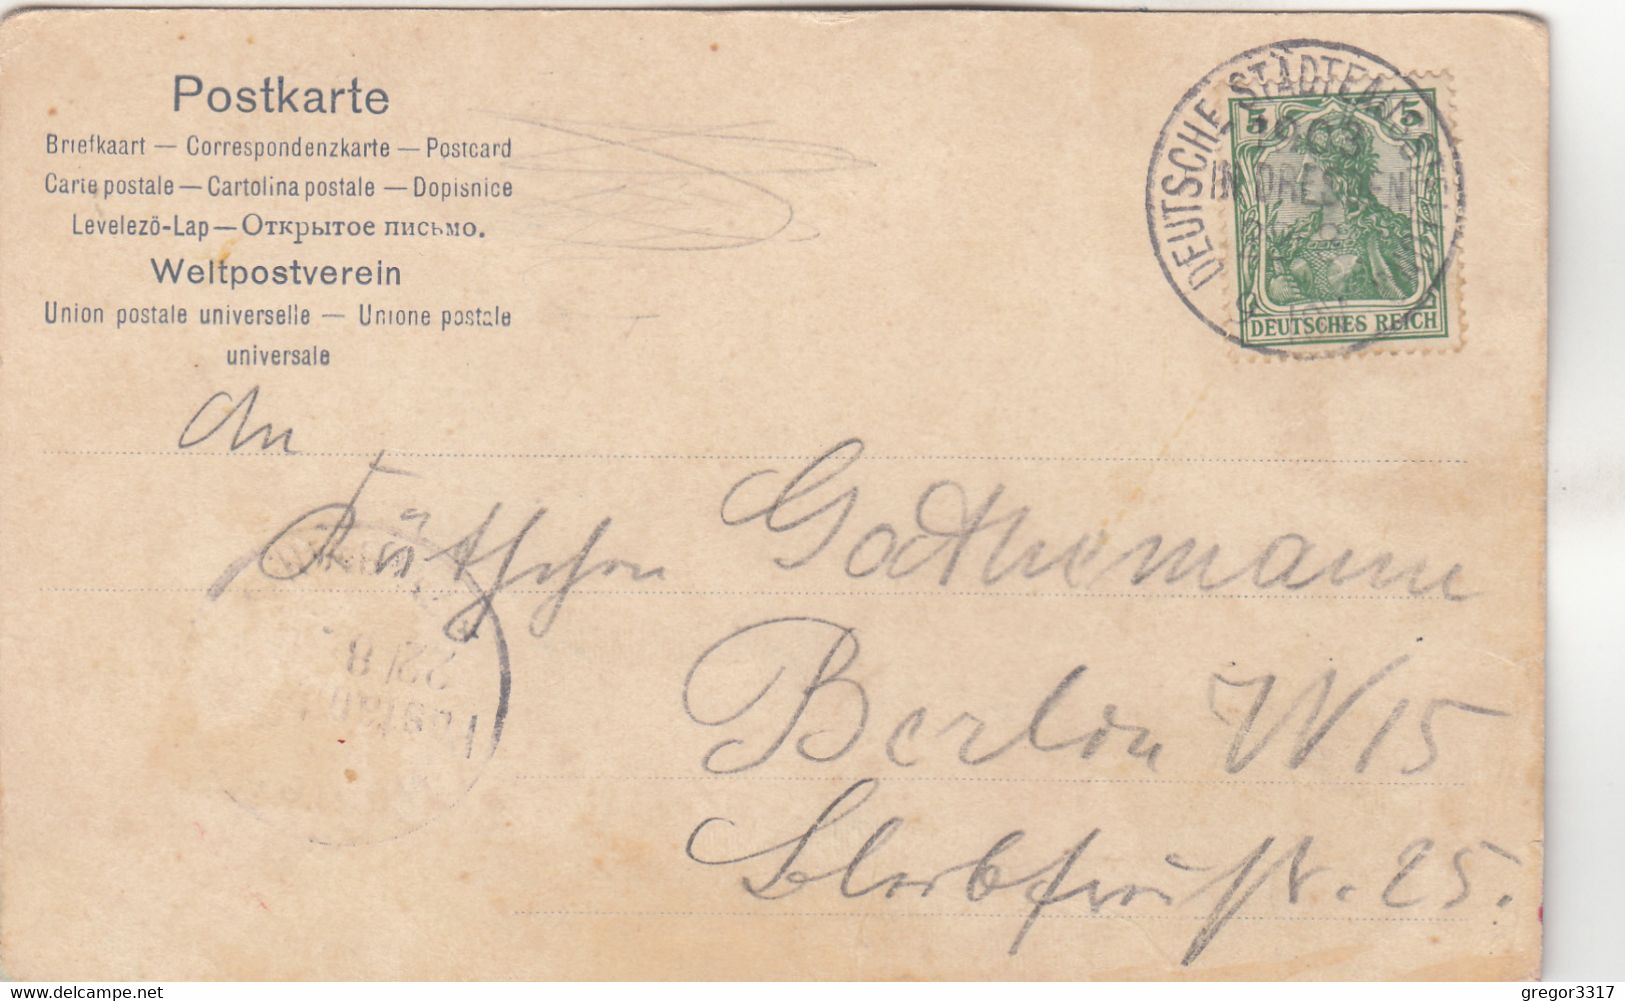 Postkarte
Briefkaart — Correspondenzkarte — Postcard
Carte postale — Cartolina postale — Dopisnice
Levelezö-Lap — Открытое письмо.
Weltpostverein
Union postale universelle — Unione postale
universale
DEUTSCHE STÄDTE
1903
IN DRESDEN
5 5
DEUTSCHES REICH
An
Gathemann
Berlin W 15
25.
22/8
gregor3317